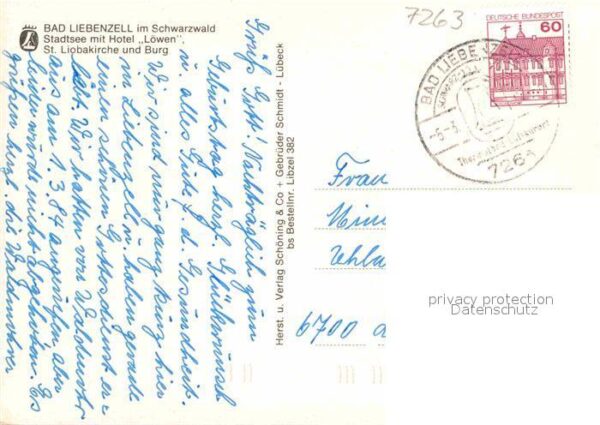 BAD LIEBENZELL im Schwarzwald
Stadtsee mit Hotel „Löwen"
St. Liobakirche und Burg
7263
DEUTSCHE BUNDESPOST
60
BAD LIEBENZELL
7263
Grüß Gott! Nachträglich zum
Geburtstag herzl. Glückwunsch
u. alles Gute f. d. Gesundheit.
Wir sind nun ganz kurz hier
in Liebenzell u. haben gerade
einen schönen Gottesdienst er=
lebt. Wir hatten von
aus am 1.3.84 angerufen aber
leider wurde nicht abgehoben. Es
grüßen herzl. die
Herst. u. Verlag Schöning & Co + Gebrüder Schmidt - Lübeck
bs Bestellnr. Libzel 382
Frau
6700
privacy protection
Datenschutz